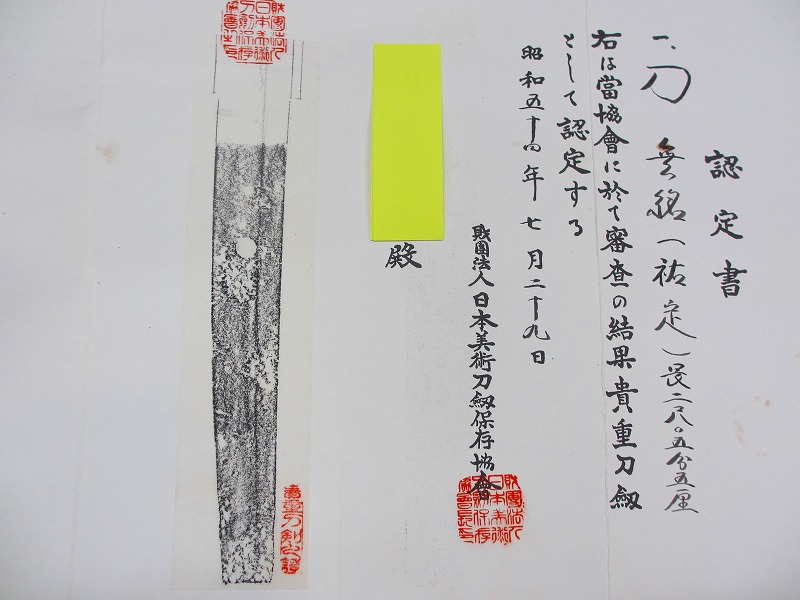 認定書
一、刀 無銘(祐定)長二尺〇五分五厘
右は當協會に於て審査の結果貴重刀劔
として認定する
昭和五十四年七月二十九日
財團法人日本美術刀劔保存協會
殿
財團法人
日本美術
刀劔保存
協會之印
財團法人
日本美術
刀劔保存
協會長印